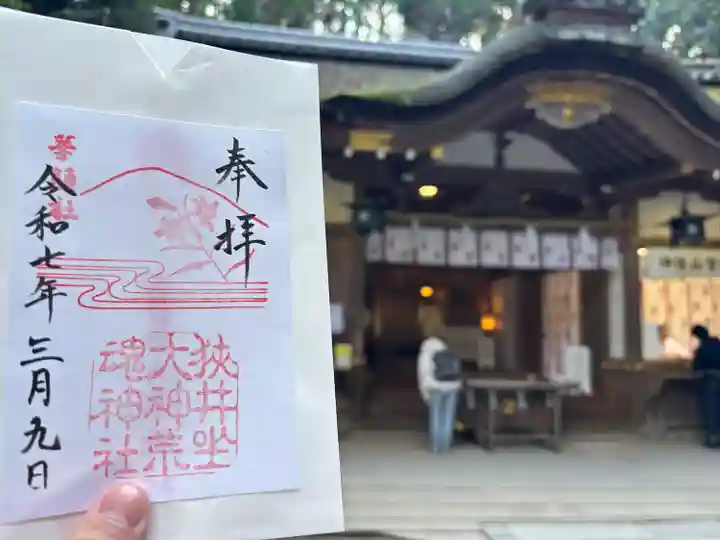 奉拝
狭井坐
大神荒
魂神社
令和七年三月九日